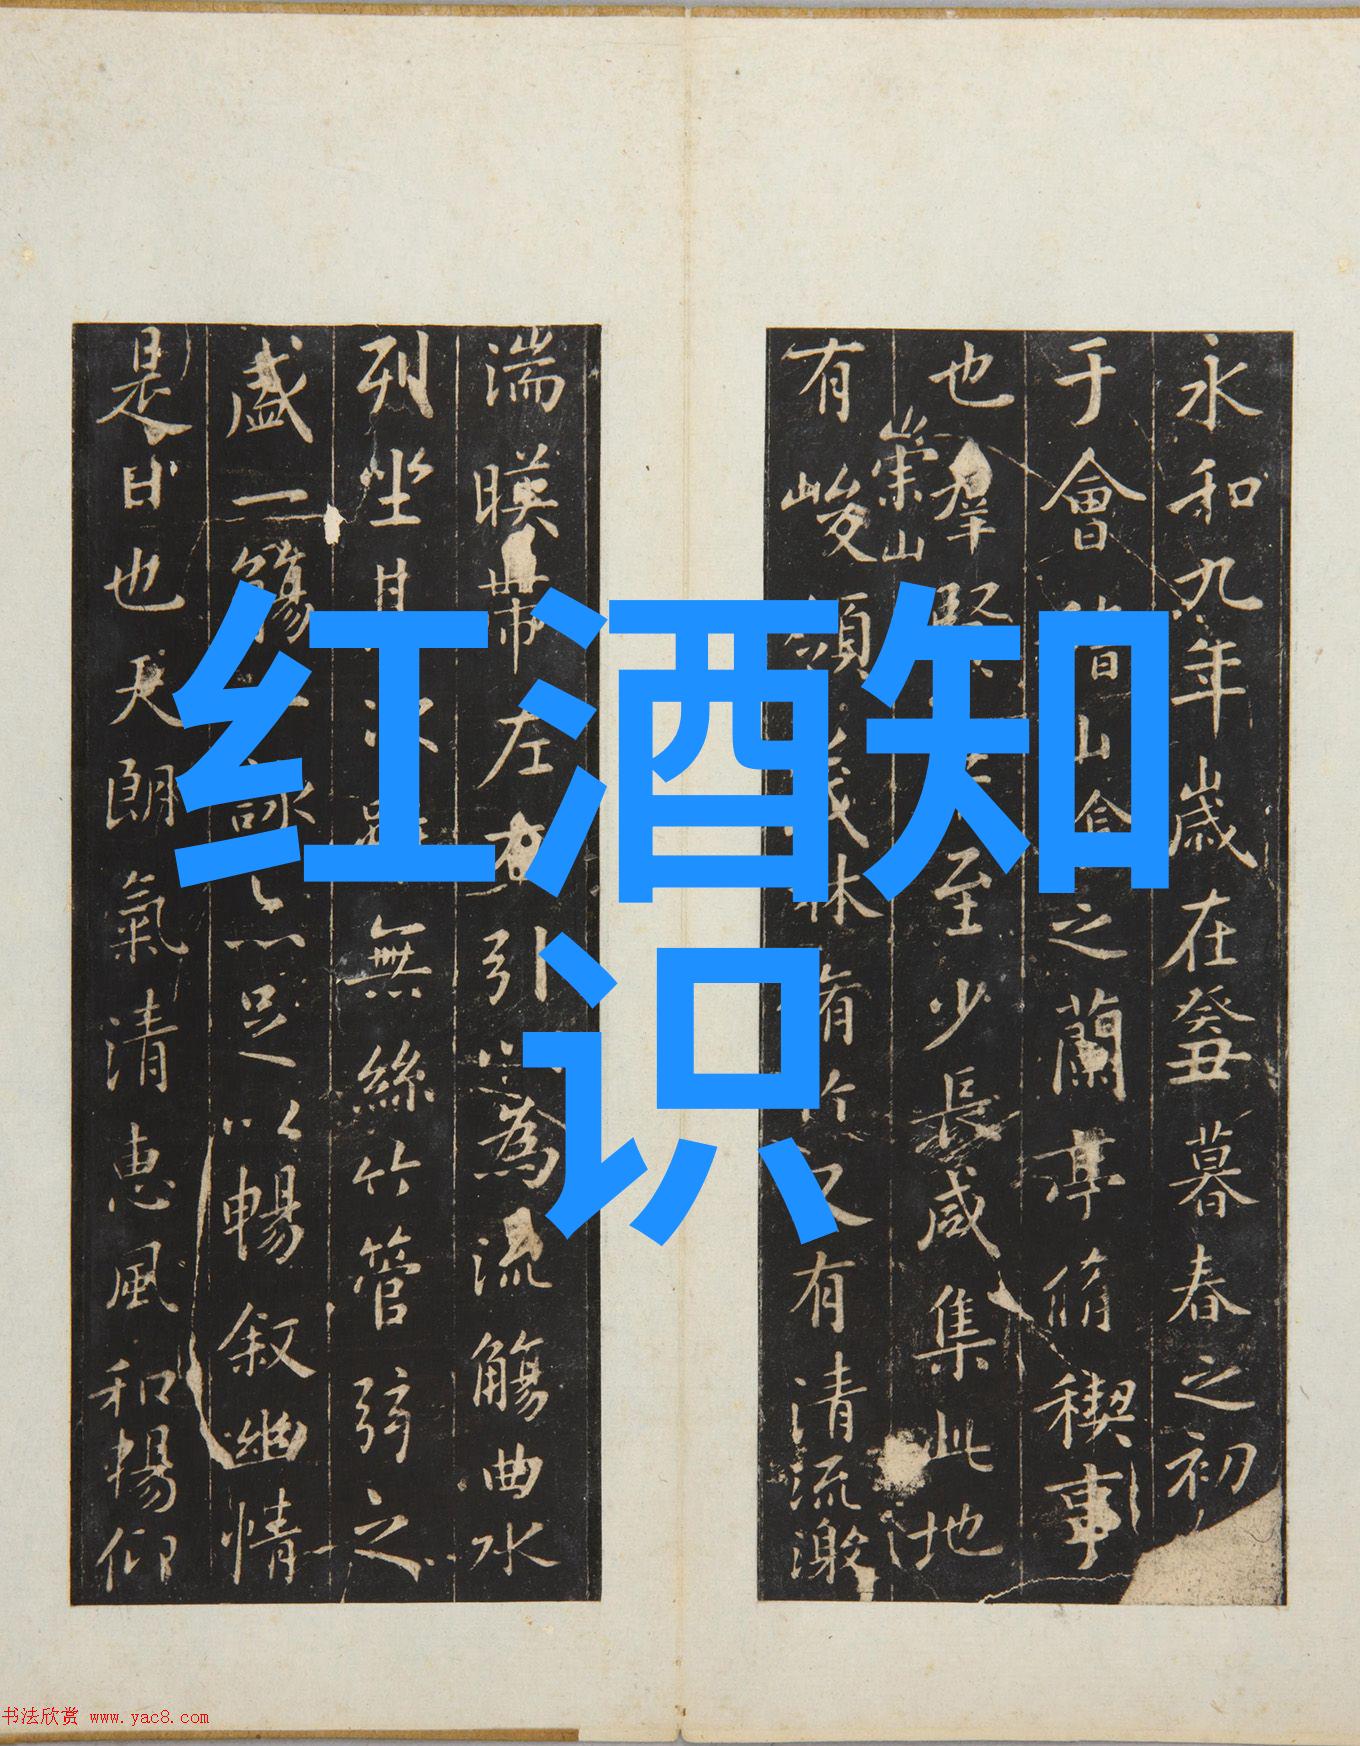 红酒知
识
永和九年歲在癸丑暮春之初
于會稽山陰之蘭亭脩稧事
也羣至少長咸集此地
崇山
有峻領茂林脩竹又有清流激
湍暎帶左右引以為流觴曲水
列坐其次無絲竹管弦之
盛一觴詠亦足以暢敘幽情
是日也天朗氣清惠風和暢仰
书法欣赏 www.yac8.com